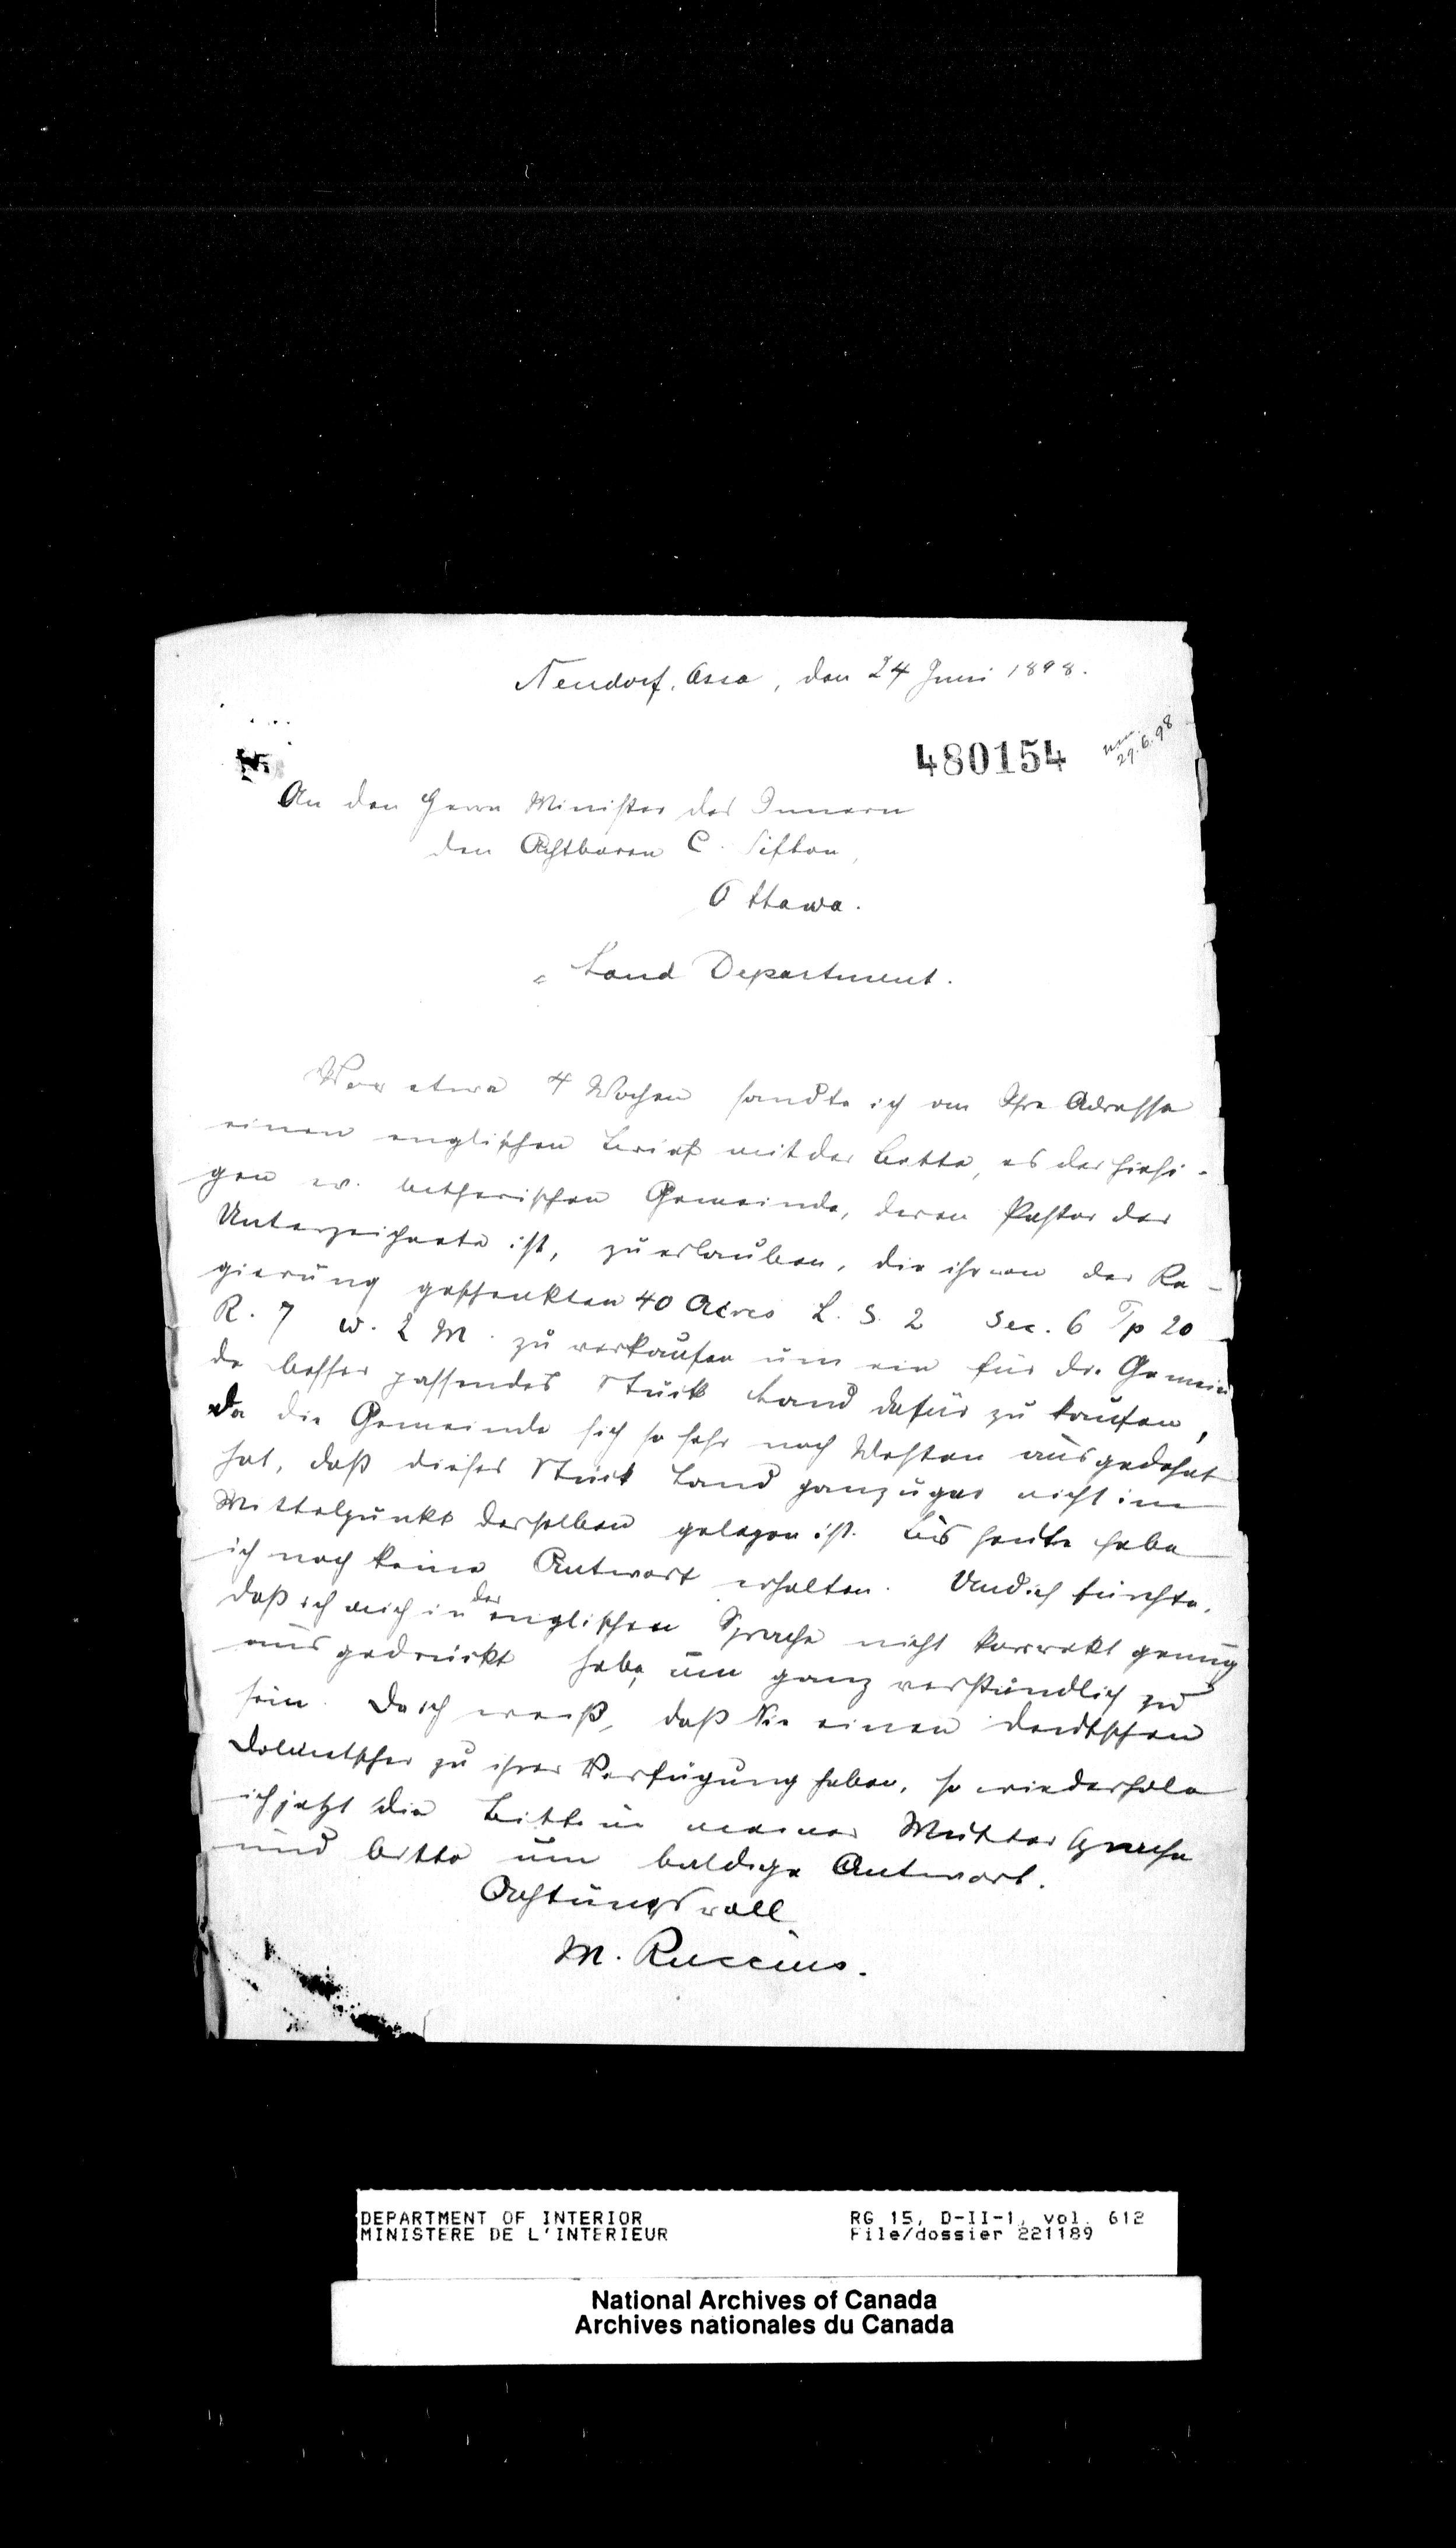 Neudorf, Assa, den 24 Juni 1898.
480154
29.6.98
An den Herrn Minister des Innern
den Achtbaren C. Sifton,
Ottawa.
Land Department.
Vor etwa 4 Wochen sandte ich an Ihre Adresse
einen englischen Brief mit der Bitte, es der hiesi-
gen ev. lutherischen Gemeinde, deren Pastor der
Unterzeichnete ist, zu erlauben, die ihr von der Re-
gierung geschenkten 40 Acres L. S. 2 Sec. 6 Tp 20
R. 7 W. 2 M. zu verkaufen um ein für die Gemein
de besser passendes Stück Land dafür zu kaufen,
da die Gemeinde sich so sehr nach Westen ausgedehnt
hat, daß dieses Stück Land ganz u gar nicht im
Mittelpunkt derselben gelegen ist. Bis heute habe
ich noch keine Antwort erhalten. Und ich fürchte,
daß ich mich in der englischen Sprache nicht korrekt genug
ausgedrückt habe, um ganz verständlich zu
sein. Da ich weiß, daß Sie einen deutschen
Dolmetscher zu ihrer Verfügung haben, so wiederhole
ich jetzt die Bitte in meiner Mutter Sprache
und bitte um baldige Antwort.
Achtungsvoll
M. Ruccius.
DEPARTMENT OF INTERIOR RG 15, D-II-1, vol. 612
MINISTERE DE L'INTERIEUR File/dossier 221189
National Archives of Canada
Archives nationales du Canada